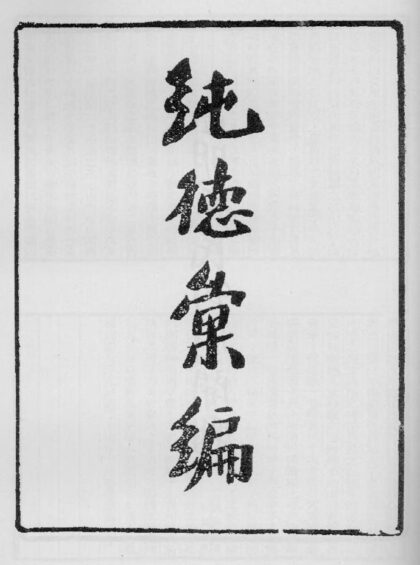 純德彙編